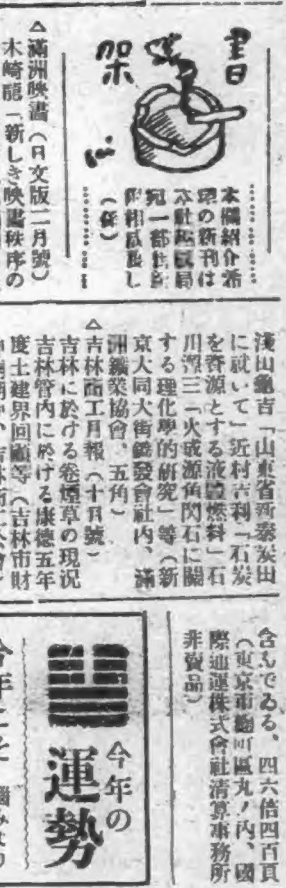 書架
本欄紹介希
望の新刊は
本社
宛一部
（係）
△滿洲映畫（日文版二月號）
木崎龍「新しき映畫秩序の
淺田龜吉「山東省新泰炭田
に就いて」近村吉利「石炭
を資源とする液體燃料」石
川澤三「火成源角閃石に關
する理化學的研究」等（新
京大同大街鑛發會社内、滿
洲鑛業協會、五角）
△吉林商工月報（十月號）
吉林に於ける卷煙草の現況
吉林管内に於ける康德五年
度土建界回顧等（吉林市財
含んでゐる。四六倍四百頁
（東京市麴町區丸ノ内、國
際通運株式會社清算事務所
非賣品）
今年の
運勢
今年こそ